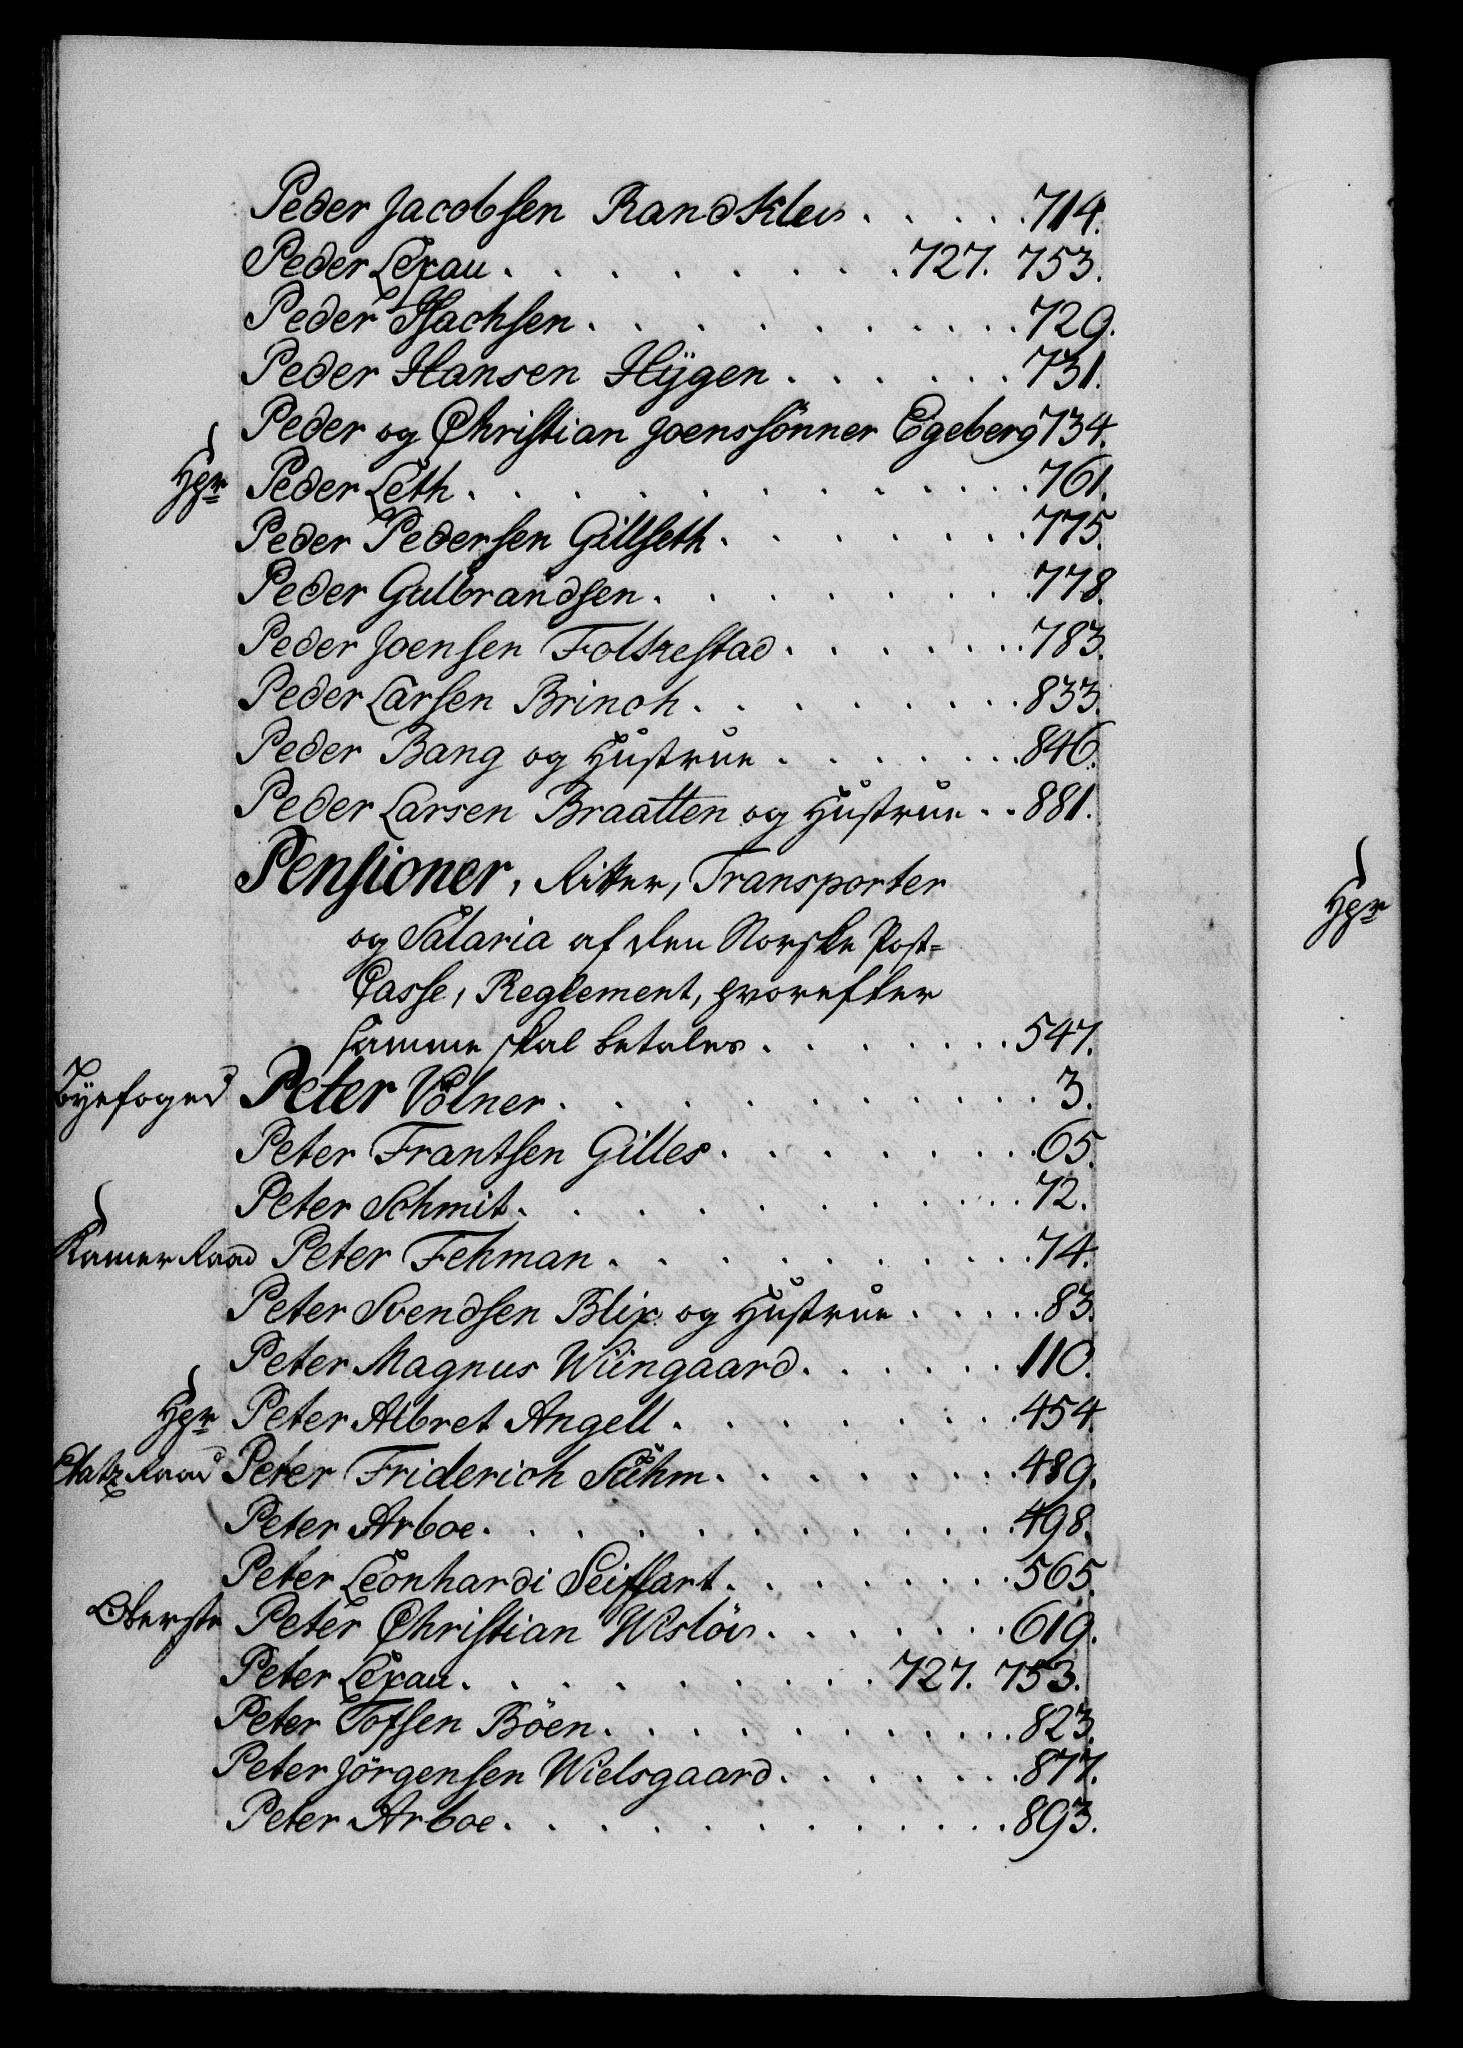 Peder Jacobsen Randklev . . . . . 714.
Peder Lexau . . . . . . . . 727. 753.
Peder Isachsen . . . . . . . . . 729.
Peder Hansen Hÿgen . . . . . . 731.
Peder og Christian Joenssönner Egeberg 734.
Hgr Peder Leth . . . . . . . . . . 761.
Peder Pedersen Gillseth . . . . . . . 775.
Peder Gulbrandsen . . . . . . . . 778.
Peder Joensen Folkestad . . . . . . 783.
Peder Larsen Brinch . . . . . . . 833.
Peder Bang og Hustrue . . . . . . 846.
Peder Larsen Braatten og Hustrue . . 881.
Pensioner, Transporter
og Salaria af den Norske Post-
Casse, Reglement, hvorefter
samme skal betales . . . . . . . 547.
Byefoged Peter Völner . . . . . . . . . 3.
Peter Frantsen Gilles . . . . . . . 65.
Peter Schmit . . . . . . . . . . 72.
Kamer Raad Peter Fehman . . . . . . . . 74.
Peter Svendsen Blix og Hustrue . . . . . 83.
Peter Magnus Wiingaard . . . . . . 110.
Hgr Peter Albret Angell . . . . . . . 454.
Etatz Raad Peter Friderich Suhm . . . . . . . 489.
Peter Arboe . . . . . . . . . . 498.
Peter Leonhardi Seiffart . . . . . . . 565.
Oberste Peter Christian Wislöv . . . . . . 619.
Peter Lexau . . . . . . . . 727. 753.
Peter Tofsen Böen . . . . . . . . 823.
Peter Jörgensen Wielsgaard . . . . . . 877.
Peter Arboe . . . . . . . . . . 893.
Hgr